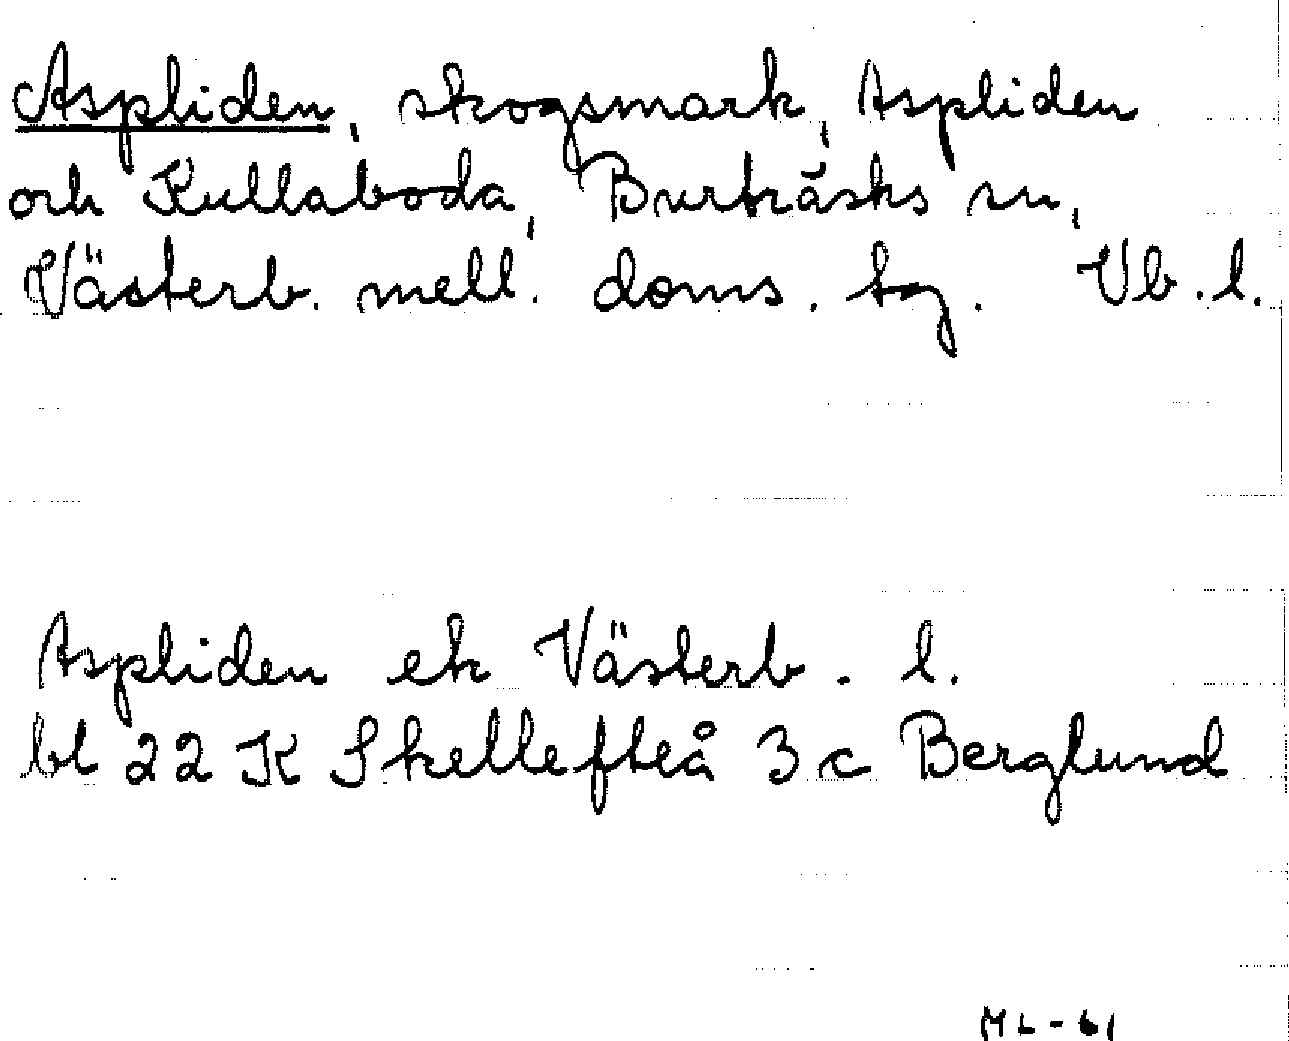 Aspliden, skogsmark, Aspliden
och Kullaboda, Burträsks sn,
Västerb. mell. doms. tg. Vb. l.
Aspliden ek Västerb. l.
bl 22 K Skellefteå 3 c Berglund
ML-61